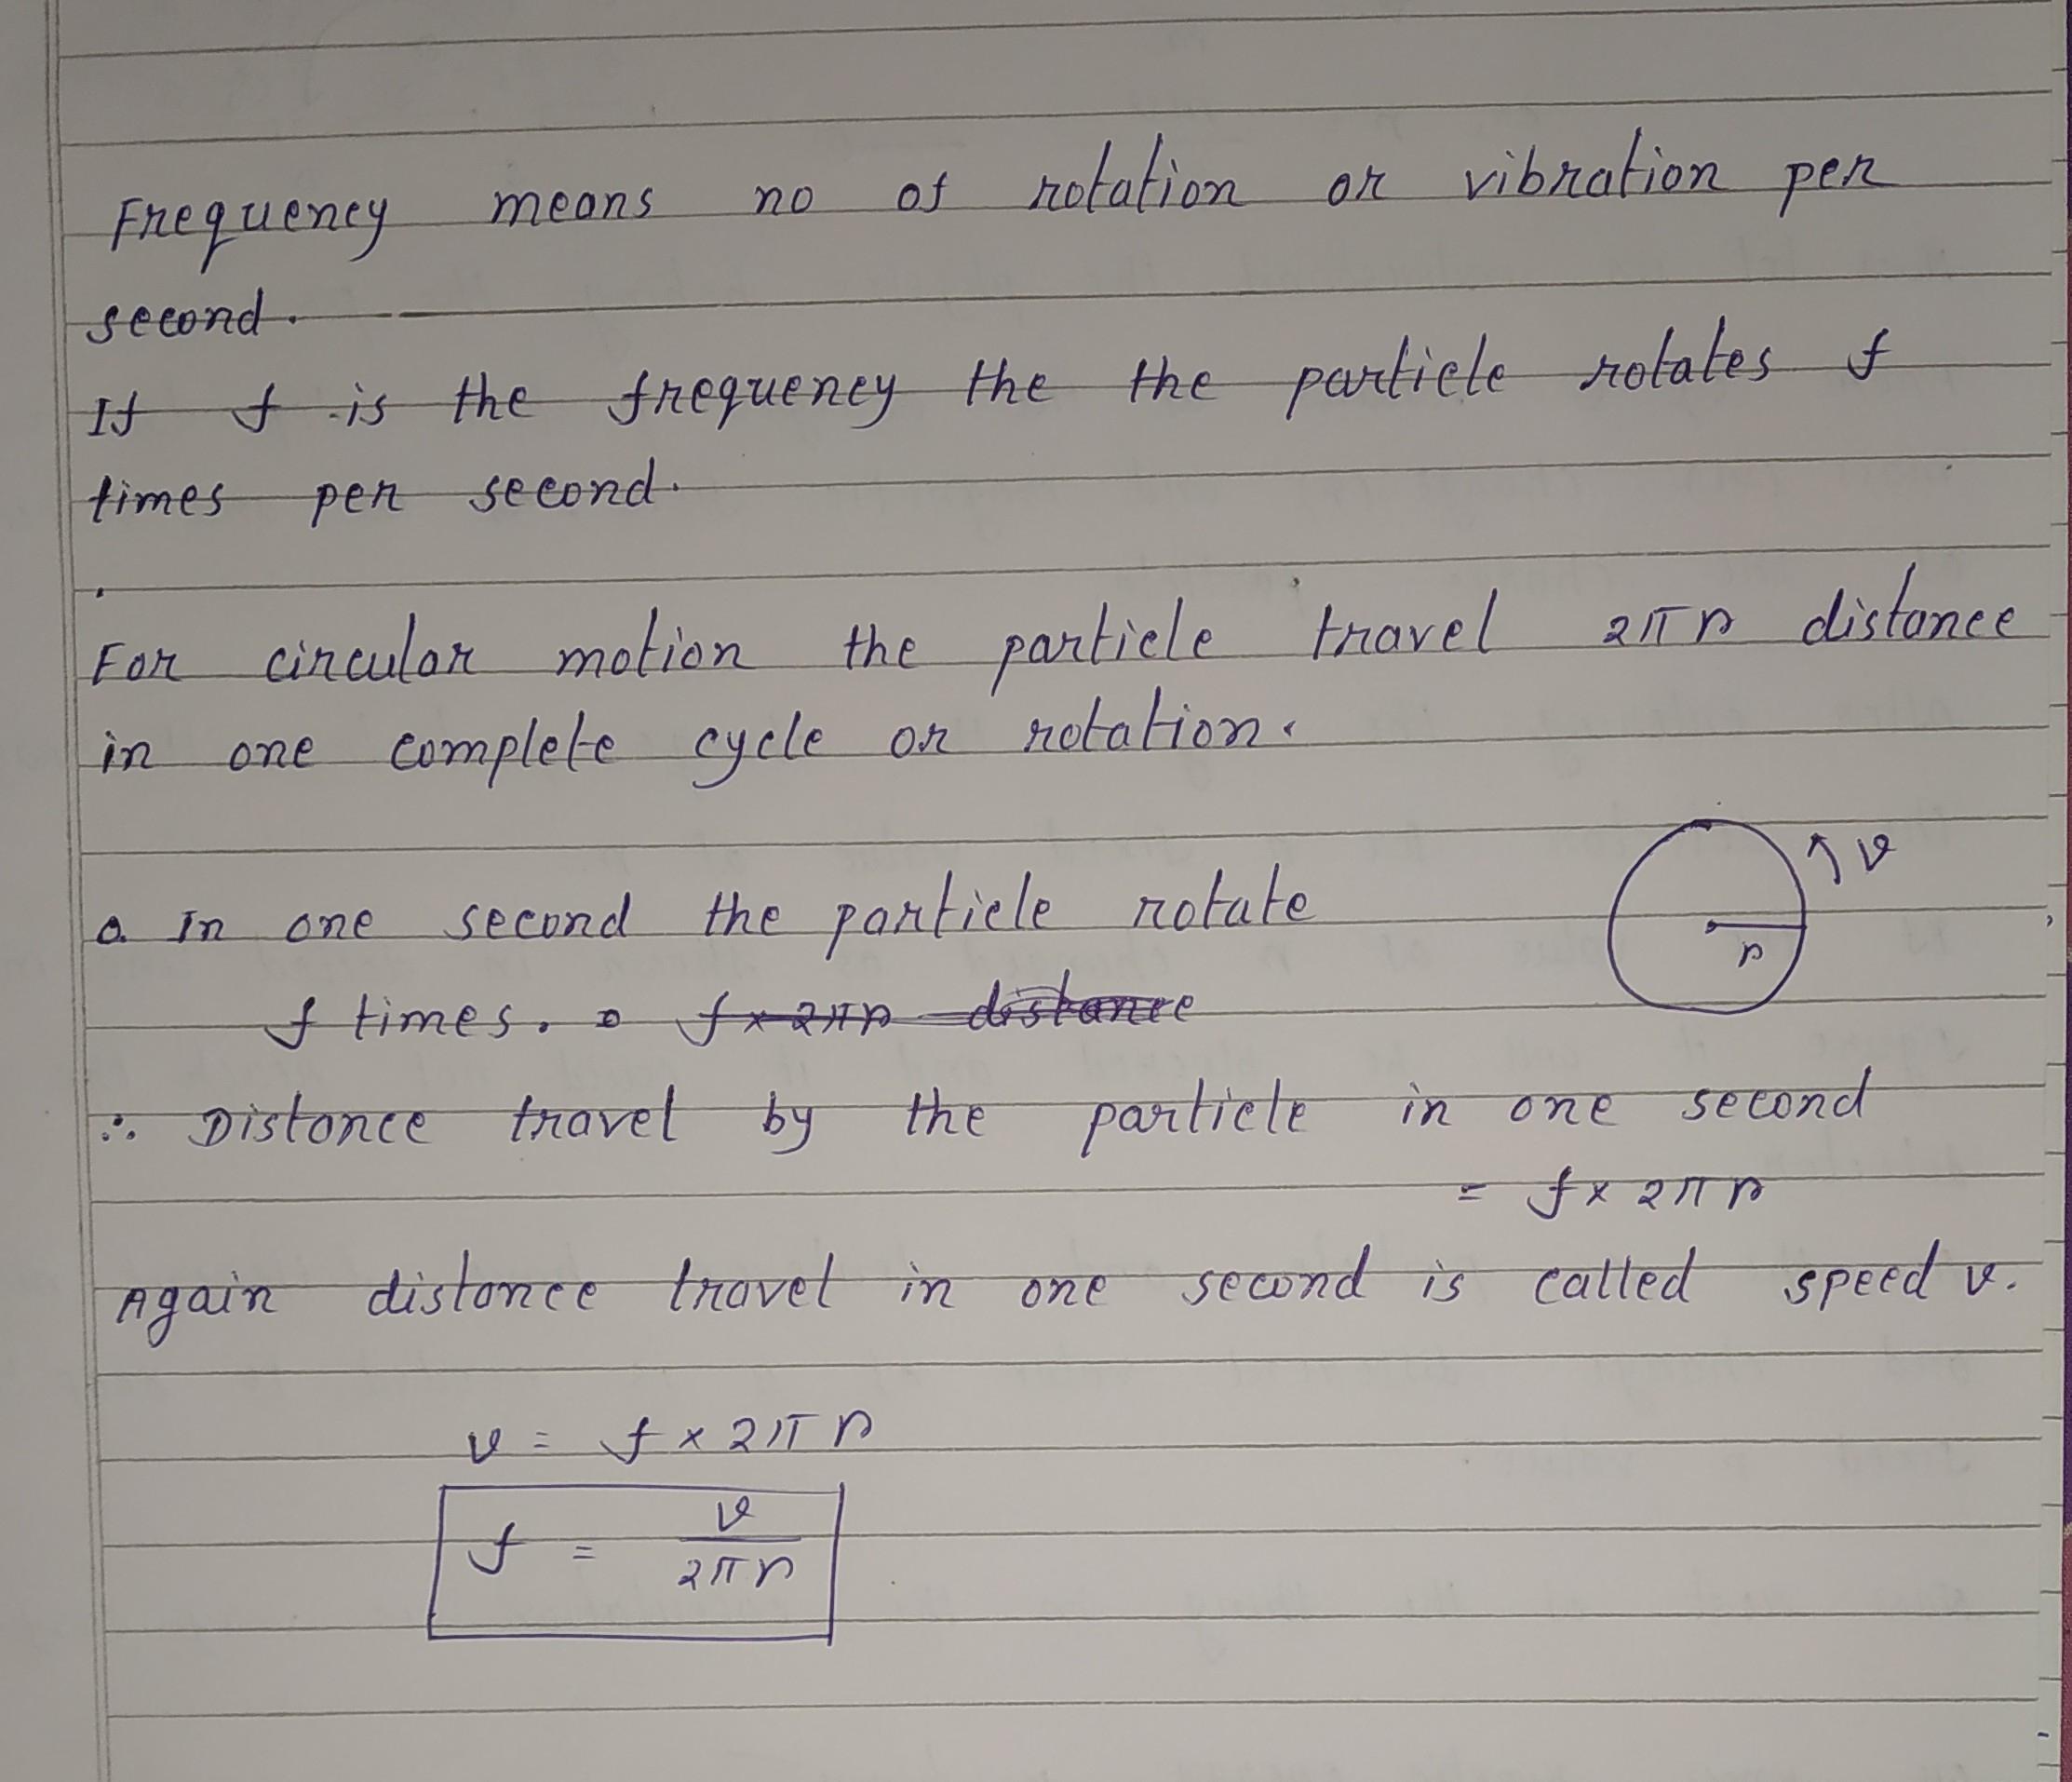 Frequency means no of rotation or vibration per
second.
If f is the frequency the the particle rotates f
times per second.
For circular motion the particle travel 2πr distance
in one complete cycle or rotation.
v
r
In one second the particle rotate
f times. f × 2πr distance
∴ Distance travel by the particle in one second
= f × 2πr
Again distance travel in one second is called speed v.
v = f × 2πr
f = v / 2πr